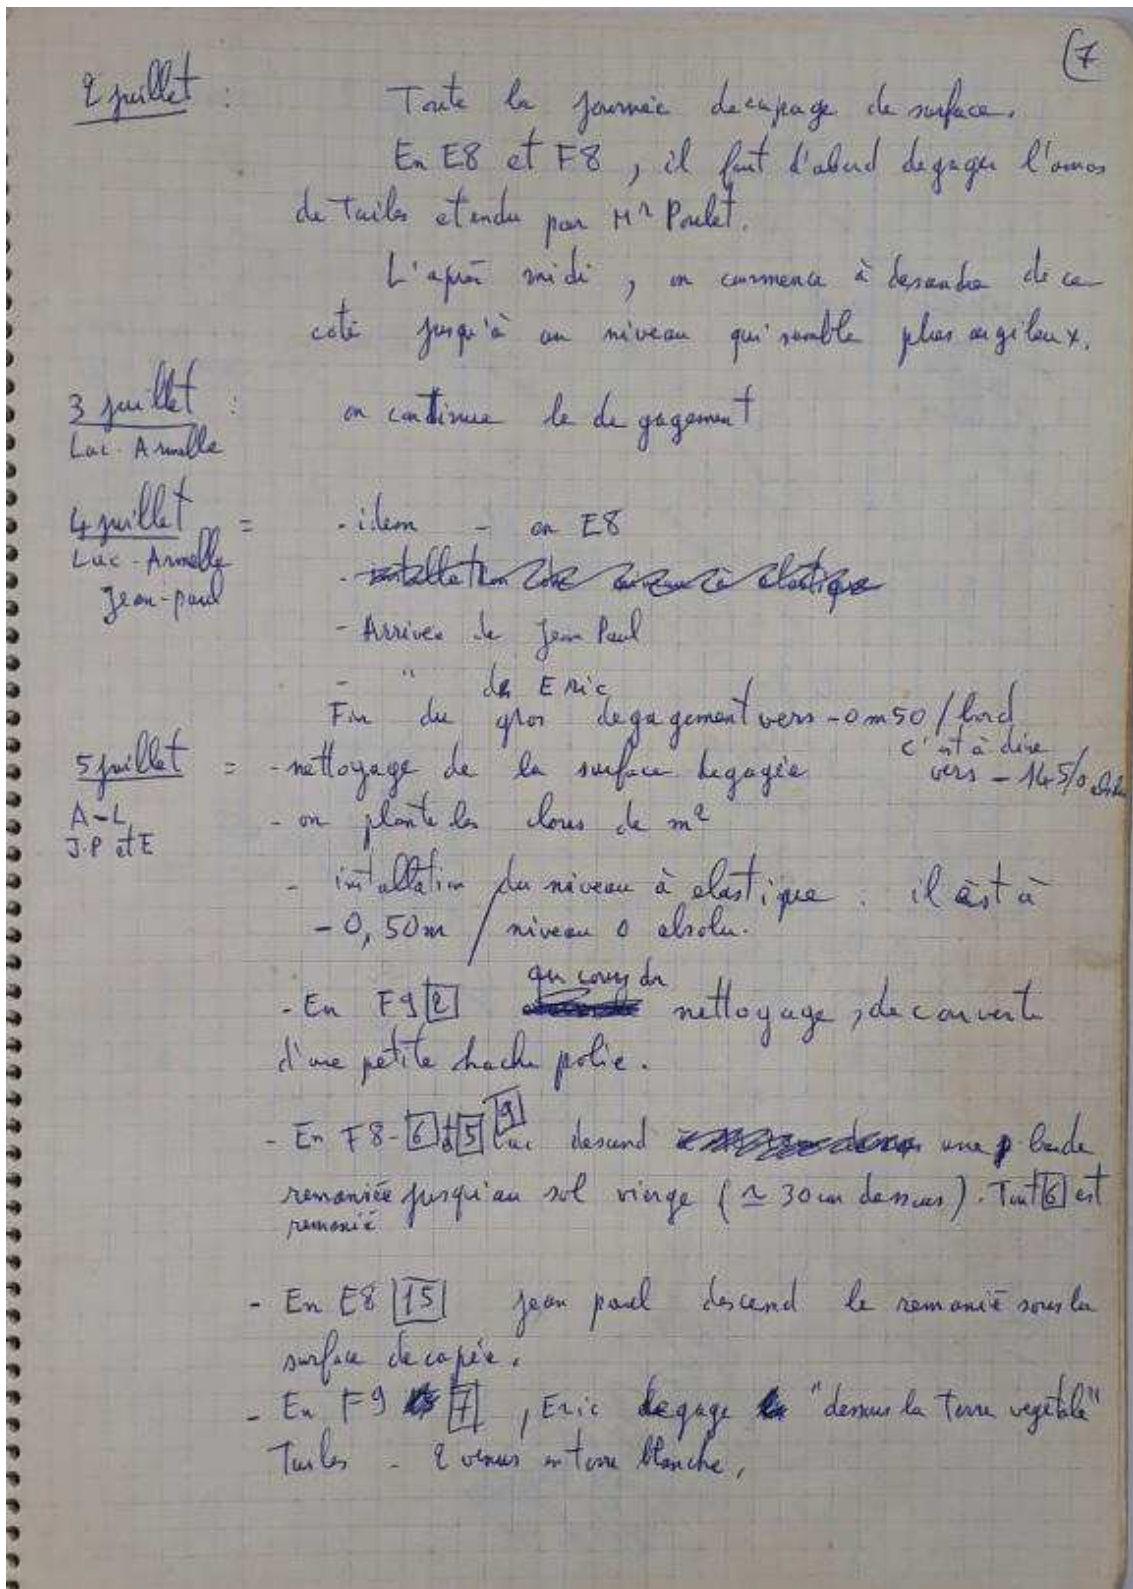 (7
2 juillet :
Toute la journée decapage de surface.
En E8 et F8, il faut d'abord degager l'amas
de Tuiles etendu par Mr Poulet.
L'après midi, on commence à descendre de ce
coté jusqu'à un niveau qui semble plus argileux.
3 juillet :
Luc - Armelle
on continue le degagement
4 juillet =
Luc - Armelle
Jean-paul
- idem - en E8
- Arrivée de Jean Paul
- " de Eric
Fin du gros degagement vers -0m50 / bord
c'est à dire
vers - 145/0 absolu
5 juillet =
A-L
J.P et E
- nettoyage de la surface degagée
- on plante les clous de m2
- installation du niveau à elastique : il est à
- 0,50m / niveau 0 absolu.
- En F9 2 au cours du nettoyage, decouverte
d'une petite hache polie.
- En F8 - 6 et 5 9 Luc descend une bande
remaniée jusqu'au sol vierge (≃ 30 cm dessous). Tout 6 est
remanié
- En E8 15 jean paul descend le remanié sous la
surface decapée.
- En F9 7, Eric degage "dessous la terre vegétale"
Tuiles - 2 venus en terre blanche,